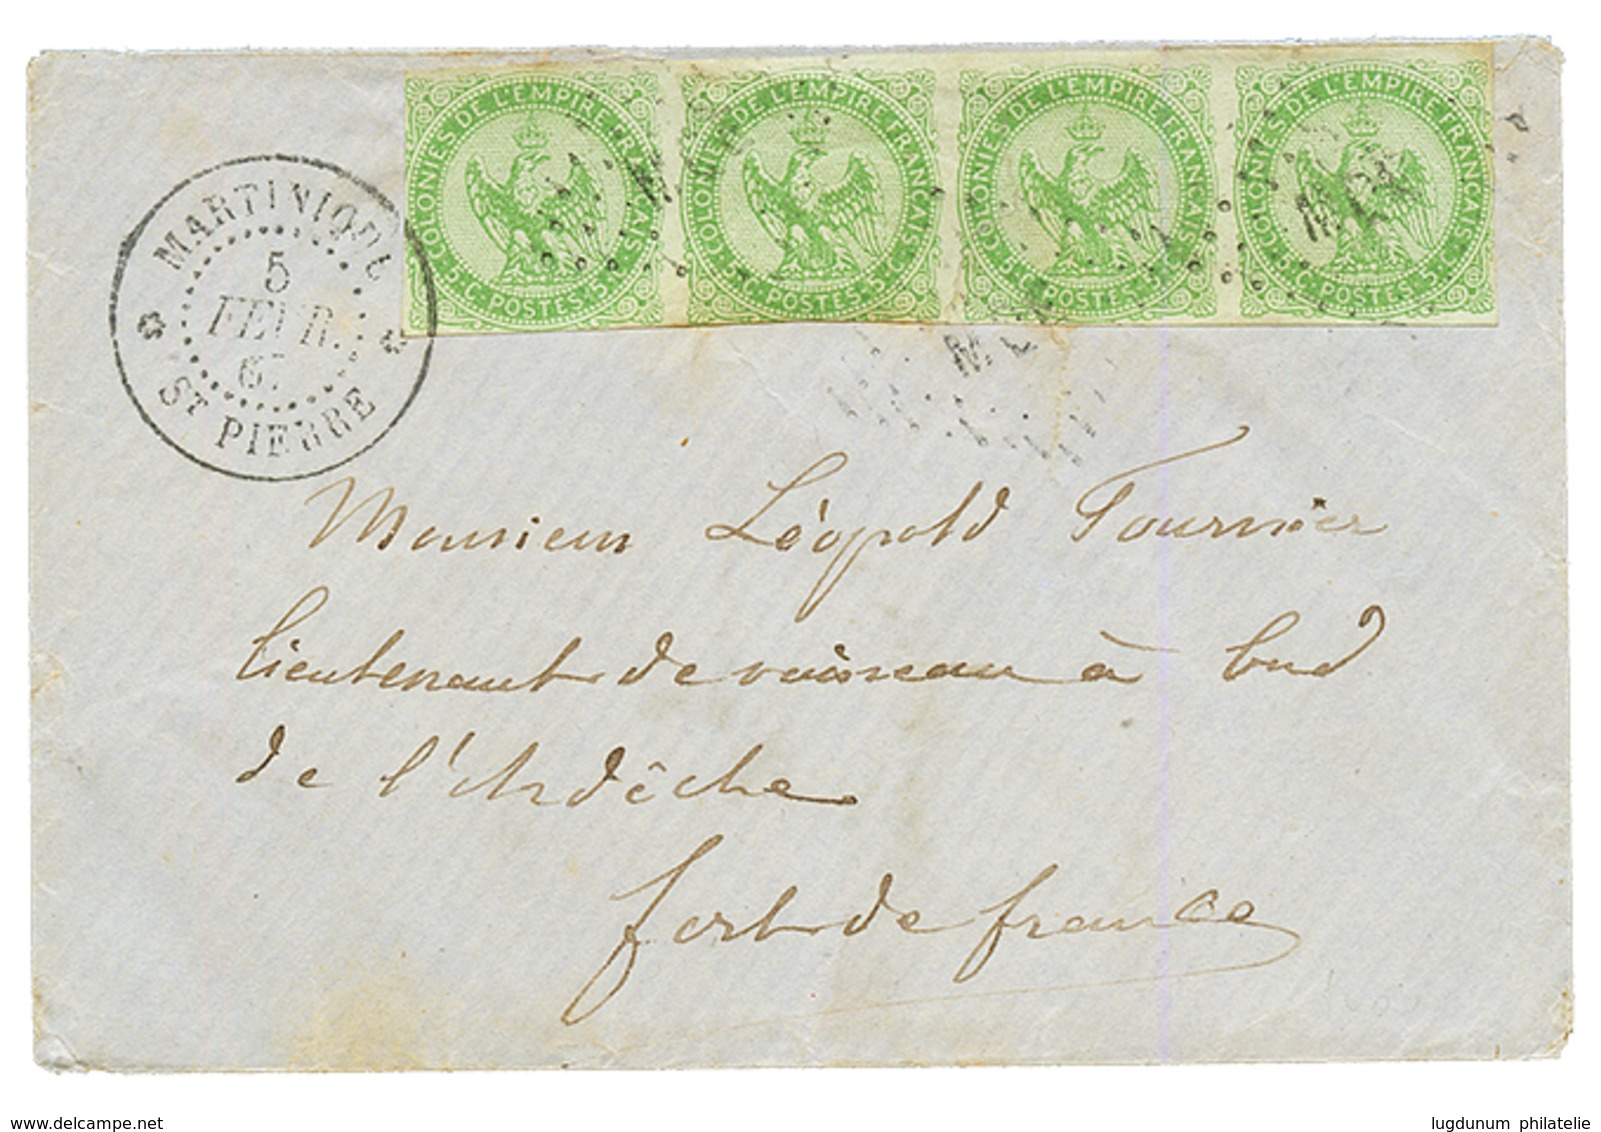 COLONIES DE L'EMPIRE FRANÇAIS
5 C. POSTES. 5 C.
COLONIES DE L'EMPIRE FRANÇAIS
5 C. POSTES. 5 C.
COLONIES DE L'EMPIRE FRANÇAIS
5 C. POSTES. 5 C.
COLONIES DE L'EMPIRE FRANÇAIS
5 C. POSTES. 5 C.
MARTINIQUE
5
FEVR.
67
ST PIERRE
MQE
MQE
Monsieur Léopold Fournier
lieutenant de vaisseau à bord
de l'Ardêche
fort de france
www.delcampe.net
lugdunum philatelie